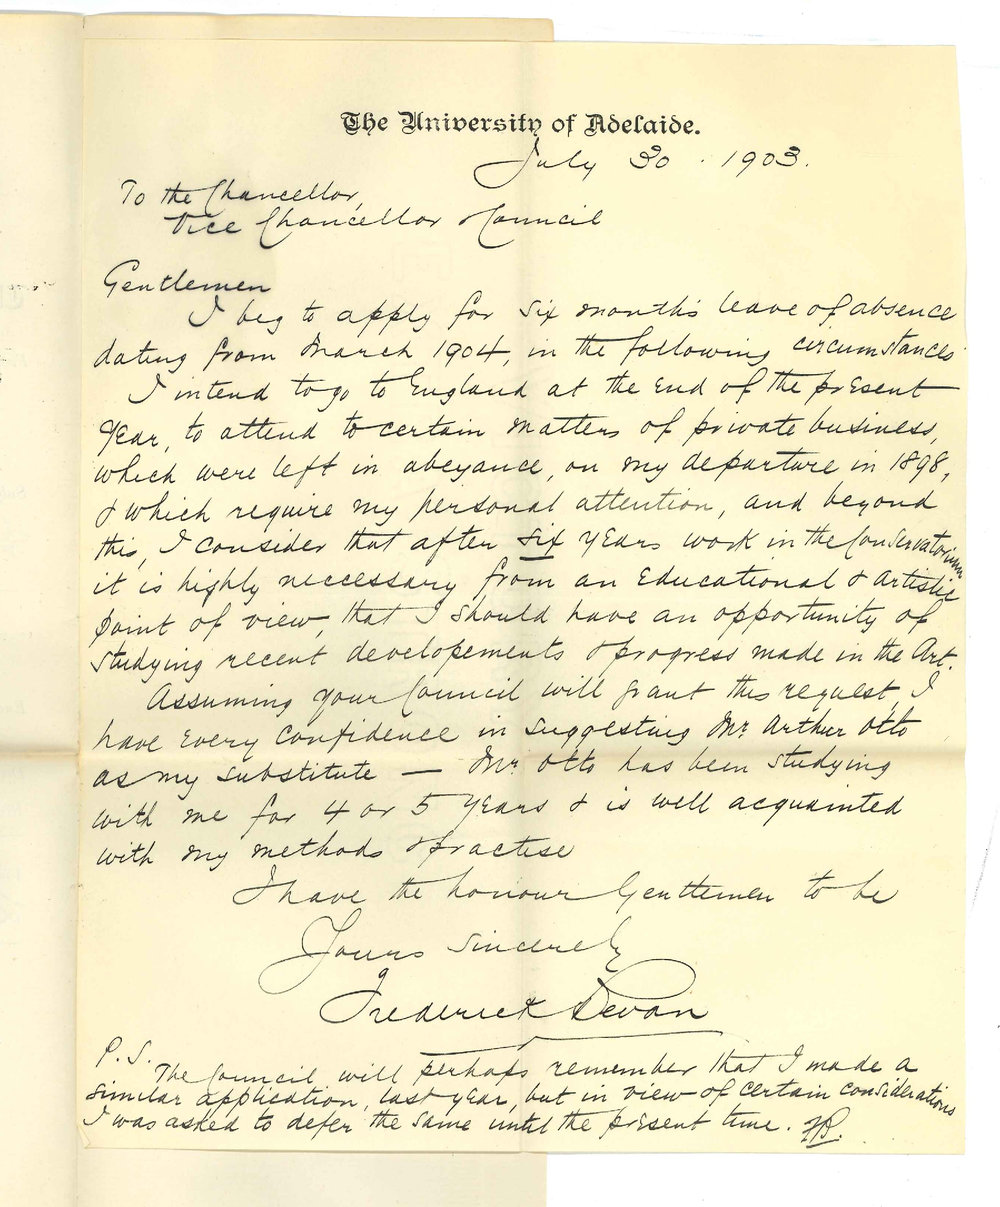 The University of Adelaide.
July 30. 1903.
To the Chancellor,
Vice Chancellor & Council
Gentlemen
I beg to apply for six months leave of absence
dating from March 1904, in the following circumstances
I intend to go to England at the end of the present
year, to attend to certain matters of private business,
which were left in abeyance, on my departure in 1898,
& which require my personal attention, and beyond
this, I consider that after six years work in the Conservatorium
it is highly neccessary from an educational & artistic
point of view, that I should have an opportunity of
studying recent developements & progress made in the Art.
Assuming your Council will grant this request, I
have every confidence in suggesting Mr. Arthur Otto
as my substitute — Mr. Otto has been studying
with me for 4 or 5 years & is well acquainted
with my methods & practise
I have the honour Gentlemen to be
Yours sincerely
Frederick Bevan
P.S.
The Council will perhaps remember that I made a
similar application, last year, but in view of certain considerations
I was asked to defer the same until the present time. FB.